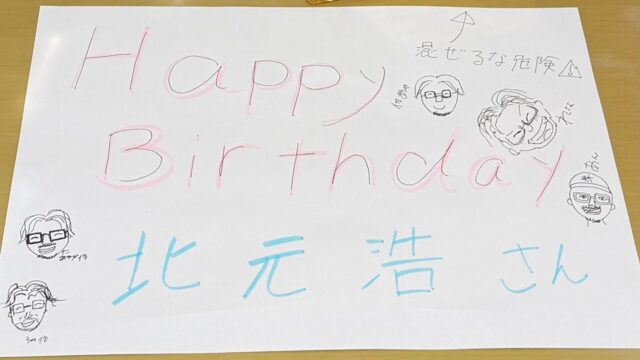 混ぜるな危険
Happy
Birthday
北元浩さん